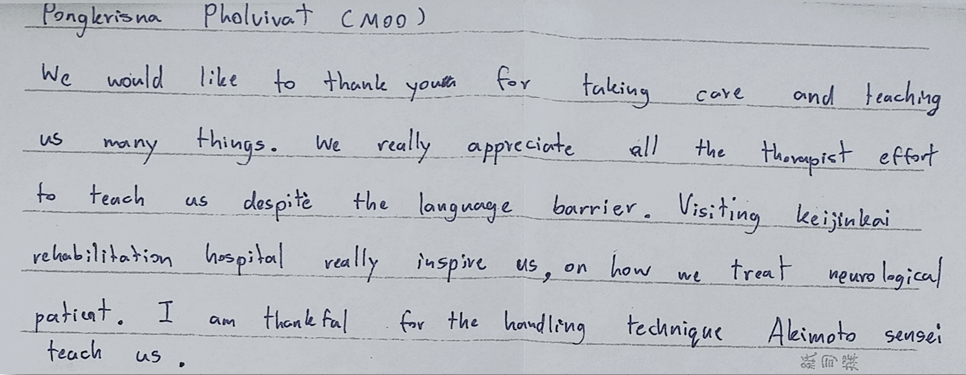 Pongkrisna Pholvivat (MOO)
We would like to thank you for taking care and teaching
us many things. We really appreciate all the therapist effort
to teach us despite the language barrier. Visiting keijinkai
rehabilitation hospital really inspire us, on how we treat neurological
patient. I am thankful for the handling technique Akimoto sensei
teach us.